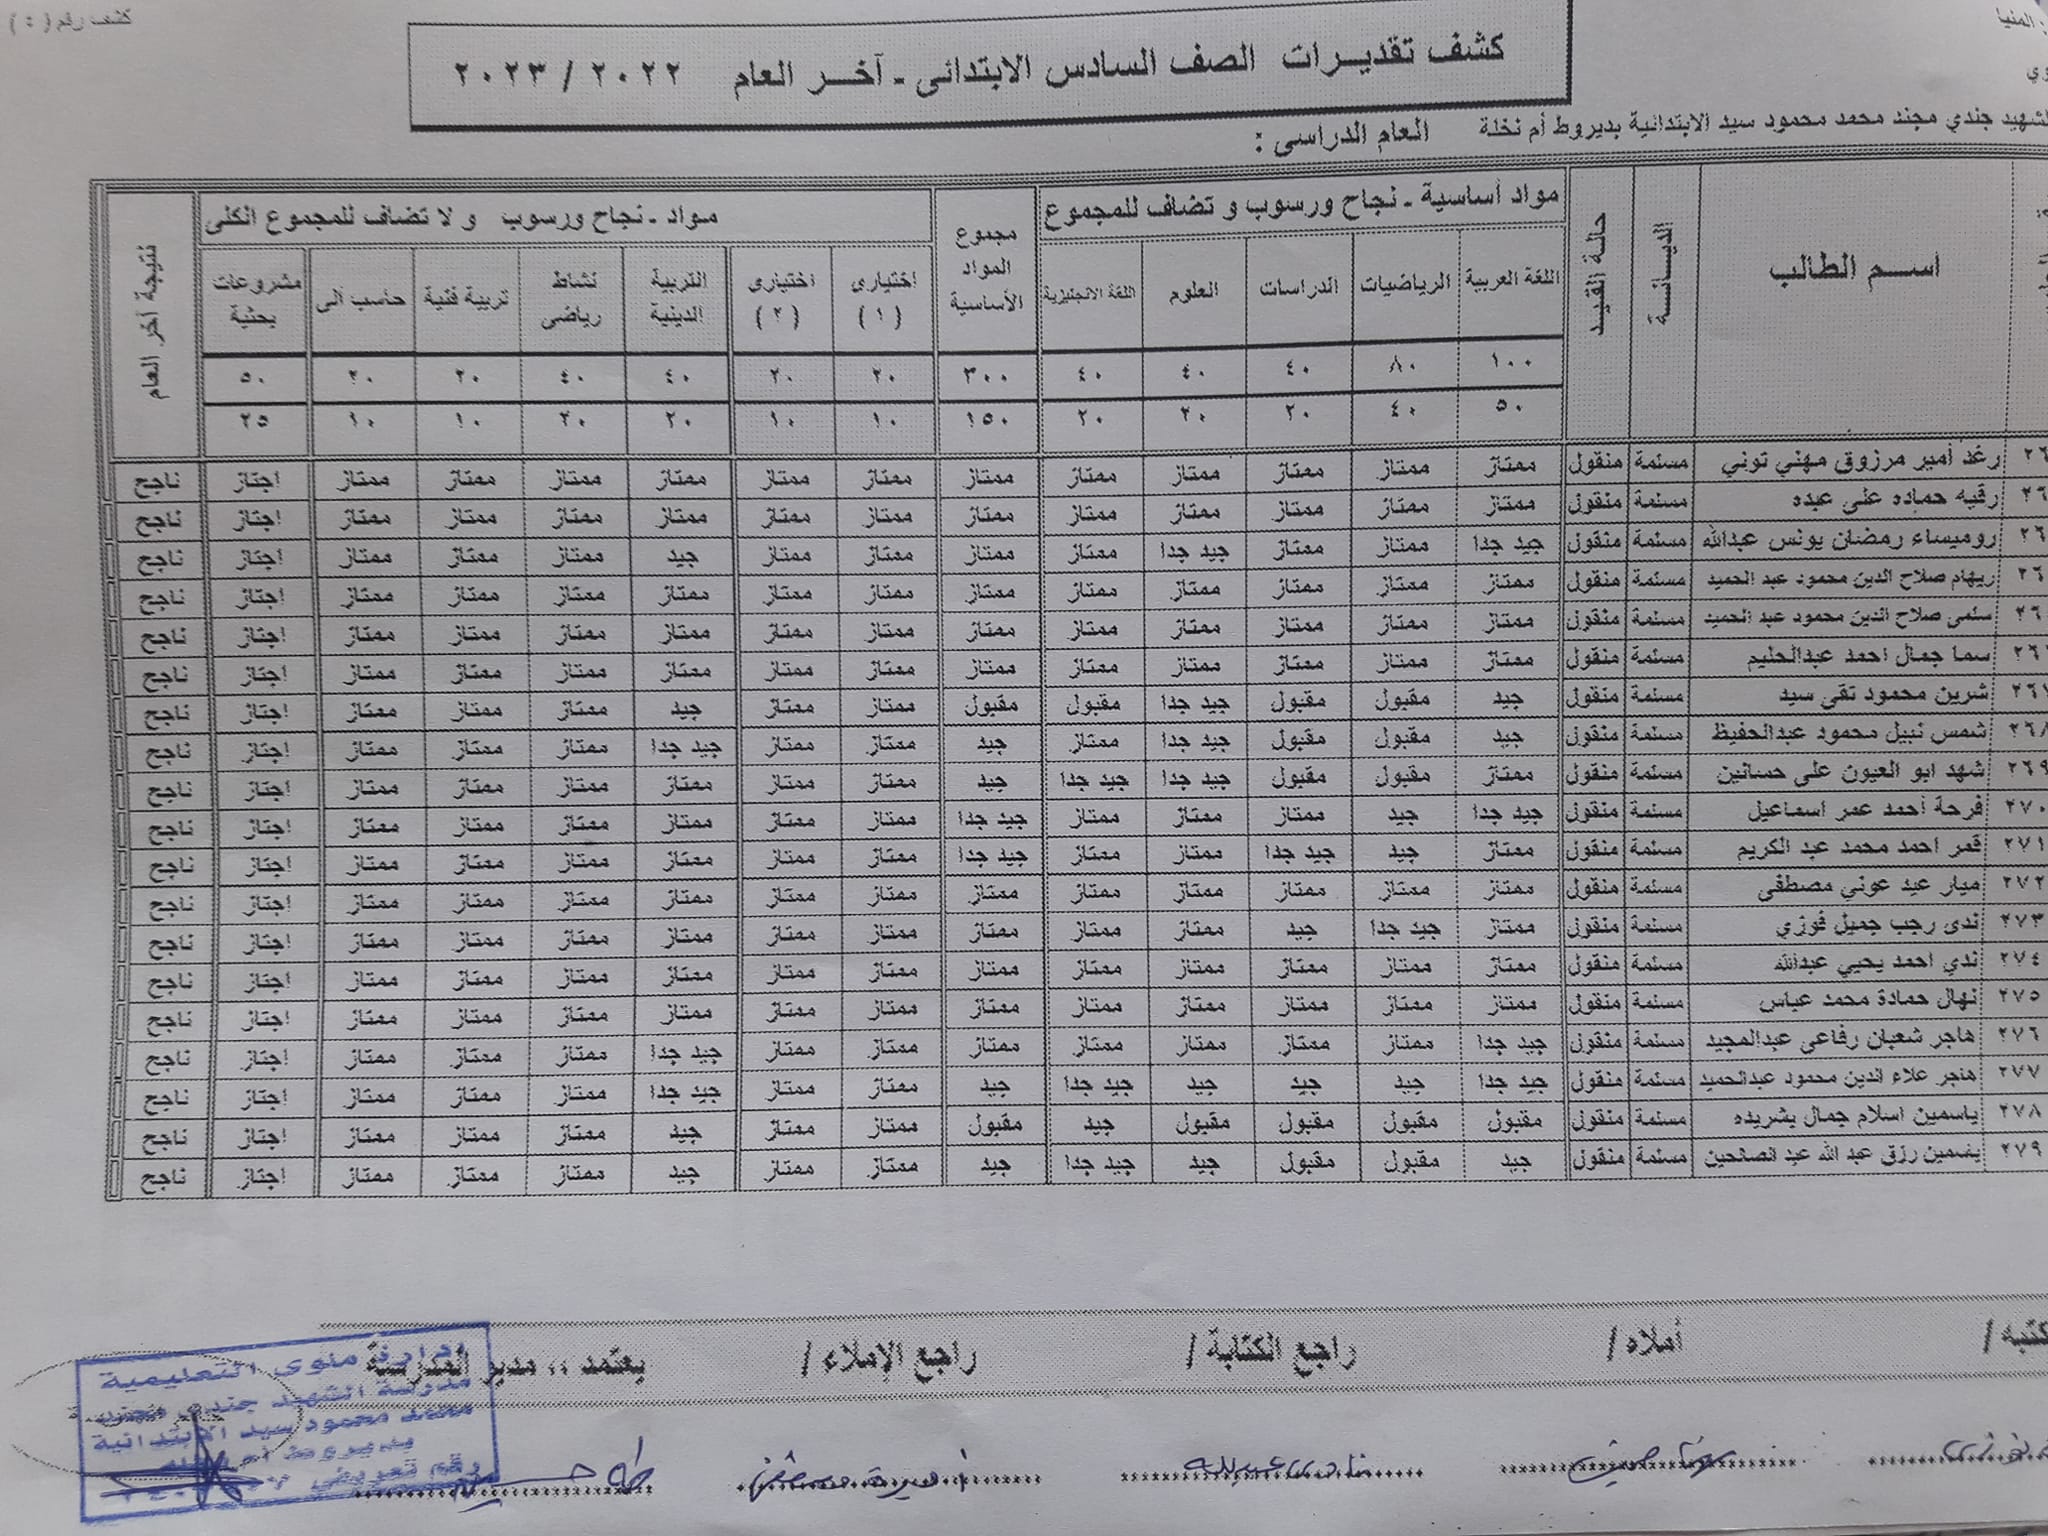 كشف رقم ( ٥ )
المنيا
كشف تقديرات الصف السادس الابتدائى - آخر العام ٢٠٢٢ / ٢٠٢٣
الشهيد جندي مجند محمد محمود سيد الابتدائية بديروط أم نخلة العام الدراسى :
اسم الطالب الديانة حالة القيد مواد أساسية - نجاح ورسوب و تضاف للمجموع مجموع المواد الأساسية مواد - نجاح ورسوب و لا تضاف للمجموع الكلى نتيجة آخر العام
اللغة العربية الرياضيات الدراسات العلوم اللغة الانجليزية اختيارى ( ١ ) اختيارى ( ٢ ) التربية الدينية نشاط رياضى تربية فنية حاسب آلى مشروعات بحثية
١٠٠ ٨٠ ٤٠ ٤٠ ٤٠ ٣٠٠ ٢٠ ٢٠ ٤٠ ٤٠ ٢٠ ٢٠ ٥٠
٥٠ ٤٠ ٢٠ ٢٠ ٢٠ ١٥٠ ١٠ ١٠ ٢٠ ٢٠ ١٠ ١٠ ٢٥
رغد أمير مرزوق مهني توني مسلمة منقول ممتاز ممتاز ممتاز ممتاز ممتاز ممتاز ممتاز ممتاز ممتاز ممتاز ممتاز ممتاز اجتاز ناجح
رقيه حماده على عبده مسلمة منقول ممتاز ممتاز ممتاز ممتاز ممتاز ممتاز ممتاز ممتاز ممتاز ممتاز ممتاز ممتاز اجتاز ناجح
روميساء رمضان يونس عبدالله مسلمة منقول جيد جدا ممتاز ممتاز جيد جدا ممتاز ممتاز ممتاز ممتاز جيد ممتاز ممتاز ممتاز اجتاز ناجح
ريهام صلاح الدين محمود عبد الحميد مسلمة منقول ممتاز ممتاز ممتاز ممتاز ممتاز ممتاز ممتاز ممتاز ممتاز ممتاز ممتاز ممتاز اجتاز ناجح
سلمى صلاح الدين محمود عبد الحميد مسلمة منقول ممتاز ممتاز ممتاز ممتاز ممتاز ممتاز ممتاز ممتاز ممتاز ممتاز ممتاز ممتاز اجتاز ناجح
سما جمال احمد عبدالحليم مسلمة منقول ممتاز ممتاز ممتاز ممتاز ممتاز ممتاز ممتاز ممتاز ممتاز ممتاز ممتاز ممتاز اجتاز ناجح
٢٦٧ شرين محمود تقى سيد مسلمة منقول جيد مقبول مقبول جيد جدا مقبول مقبول ممتاز ممتاز جيد ممتاز ممتاز ممتاز اجتاز ناجح
٢٦٨ شمس نبيل محمود عبدالحفيظ مسلمة منقول جيد مقبول مقبول جيد جدا ممتاز جيد ممتاز ممتاز جيد جدا ممتاز ممتاز ممتاز اجتاز ناجح
٢٦٩ شهد ابو العيون على حسانين مسلمة منقول ممتاز مقبول مقبول جيد جدا جيد جدا جيد ممتاز ممتاز ممتاز ممتاز ممتاز ممتاز اجتاز ناجح
٢٧٠ فرحة أحمد عمر اسماعيل مسلمة منقول جيد جدا جيد ممتاز ممتاز ممتاز جيد جدا ممتاز ممتاز ممتاز ممتاز ممتاز ممتاز اجتاز ناجح
٢٧١ قمر احمد محمد عبد الكريم مسلمة منقول ممتاز جيد جيد جدا ممتاز ممتاز جيد جدا ممتاز ممتاز ممتاز ممتاز ممتاز ممتاز اجتاز ناجح
٢٧٢ ميار عيد عوني مصطفى مسلمة منقول ممتاز ممتاز ممتاز ممتاز ممتاز ممتاز ممتاز ممتاز ممتاز ممتاز ممتاز ممتاز اجتاز ناجح
٢٧٣ ندى رجب جميل فوزي مسلمة منقول ممتاز جيد جدا جيد ممتاز ممتاز ممتاز ممتاز ممتاز ممتاز ممتاز ممتاز ممتاز اجتاز ناجح
٢٧٤ ندي احمد يحيي عبدالله مسلمة منقول ممتاز ممتاز ممتاز ممتاز ممتاز ممتاز ممتاز ممتاز ممتاز ممتاز ممتاز ممتاز اجتاز ناجح
٢٧٥ نهال حمادة محمد عباس مسلمة منقول ممتاز ممتاز ممتاز ممتاز ممتاز ممتاز ممتاز ممتاز ممتاز ممتاز ممتاز ممتاز اجتاز ناجح
٢٧٦ هاجر شعبان رفاعى عبدالمجيد مسلمة منقول جيد جدا ممتاز ممتاز ممتاز ممتاز ممتاز ممتاز ممتاز جيد جدا ممتاز ممتاز ممتاز اجتاز ناجح
٢٧٧ هاجر علاء الدين محمود عبدالحميد مسلمة منقول جيد جدا جيد جيد جيد جيد جدا جيد ممتاز ممتاز جيد جدا ممتاز ممتاز ممتاز اجتاز ناجح
٢٧٨ ياسمين اسلام جمال بشريده مسلمة منقول مقبول مقبول مقبول مقبول جيد مقبول ممتاز ممتاز جيد ممتاز ممتاز ممتاز اجتاز ناجح
٢٧٩ يسمين رزق عبد الله عبد الصالحين مسلمة منقول جيد مقبول مقبول جيد جيد جدا جيد ممتاز ممتاز جيد ممتاز ممتاز ممتاز اجتاز ناجح
كتبه / أملاه / راجع الكتابة / راجع الإملاء / يعتمد ،، مدير المدرسة
أميرة مصطفى
إدارة ملوى التعليمية
مدرسة الشهيد جندى مجند
محمد محمود سيد الابتدائية
بديروط أم نخلة